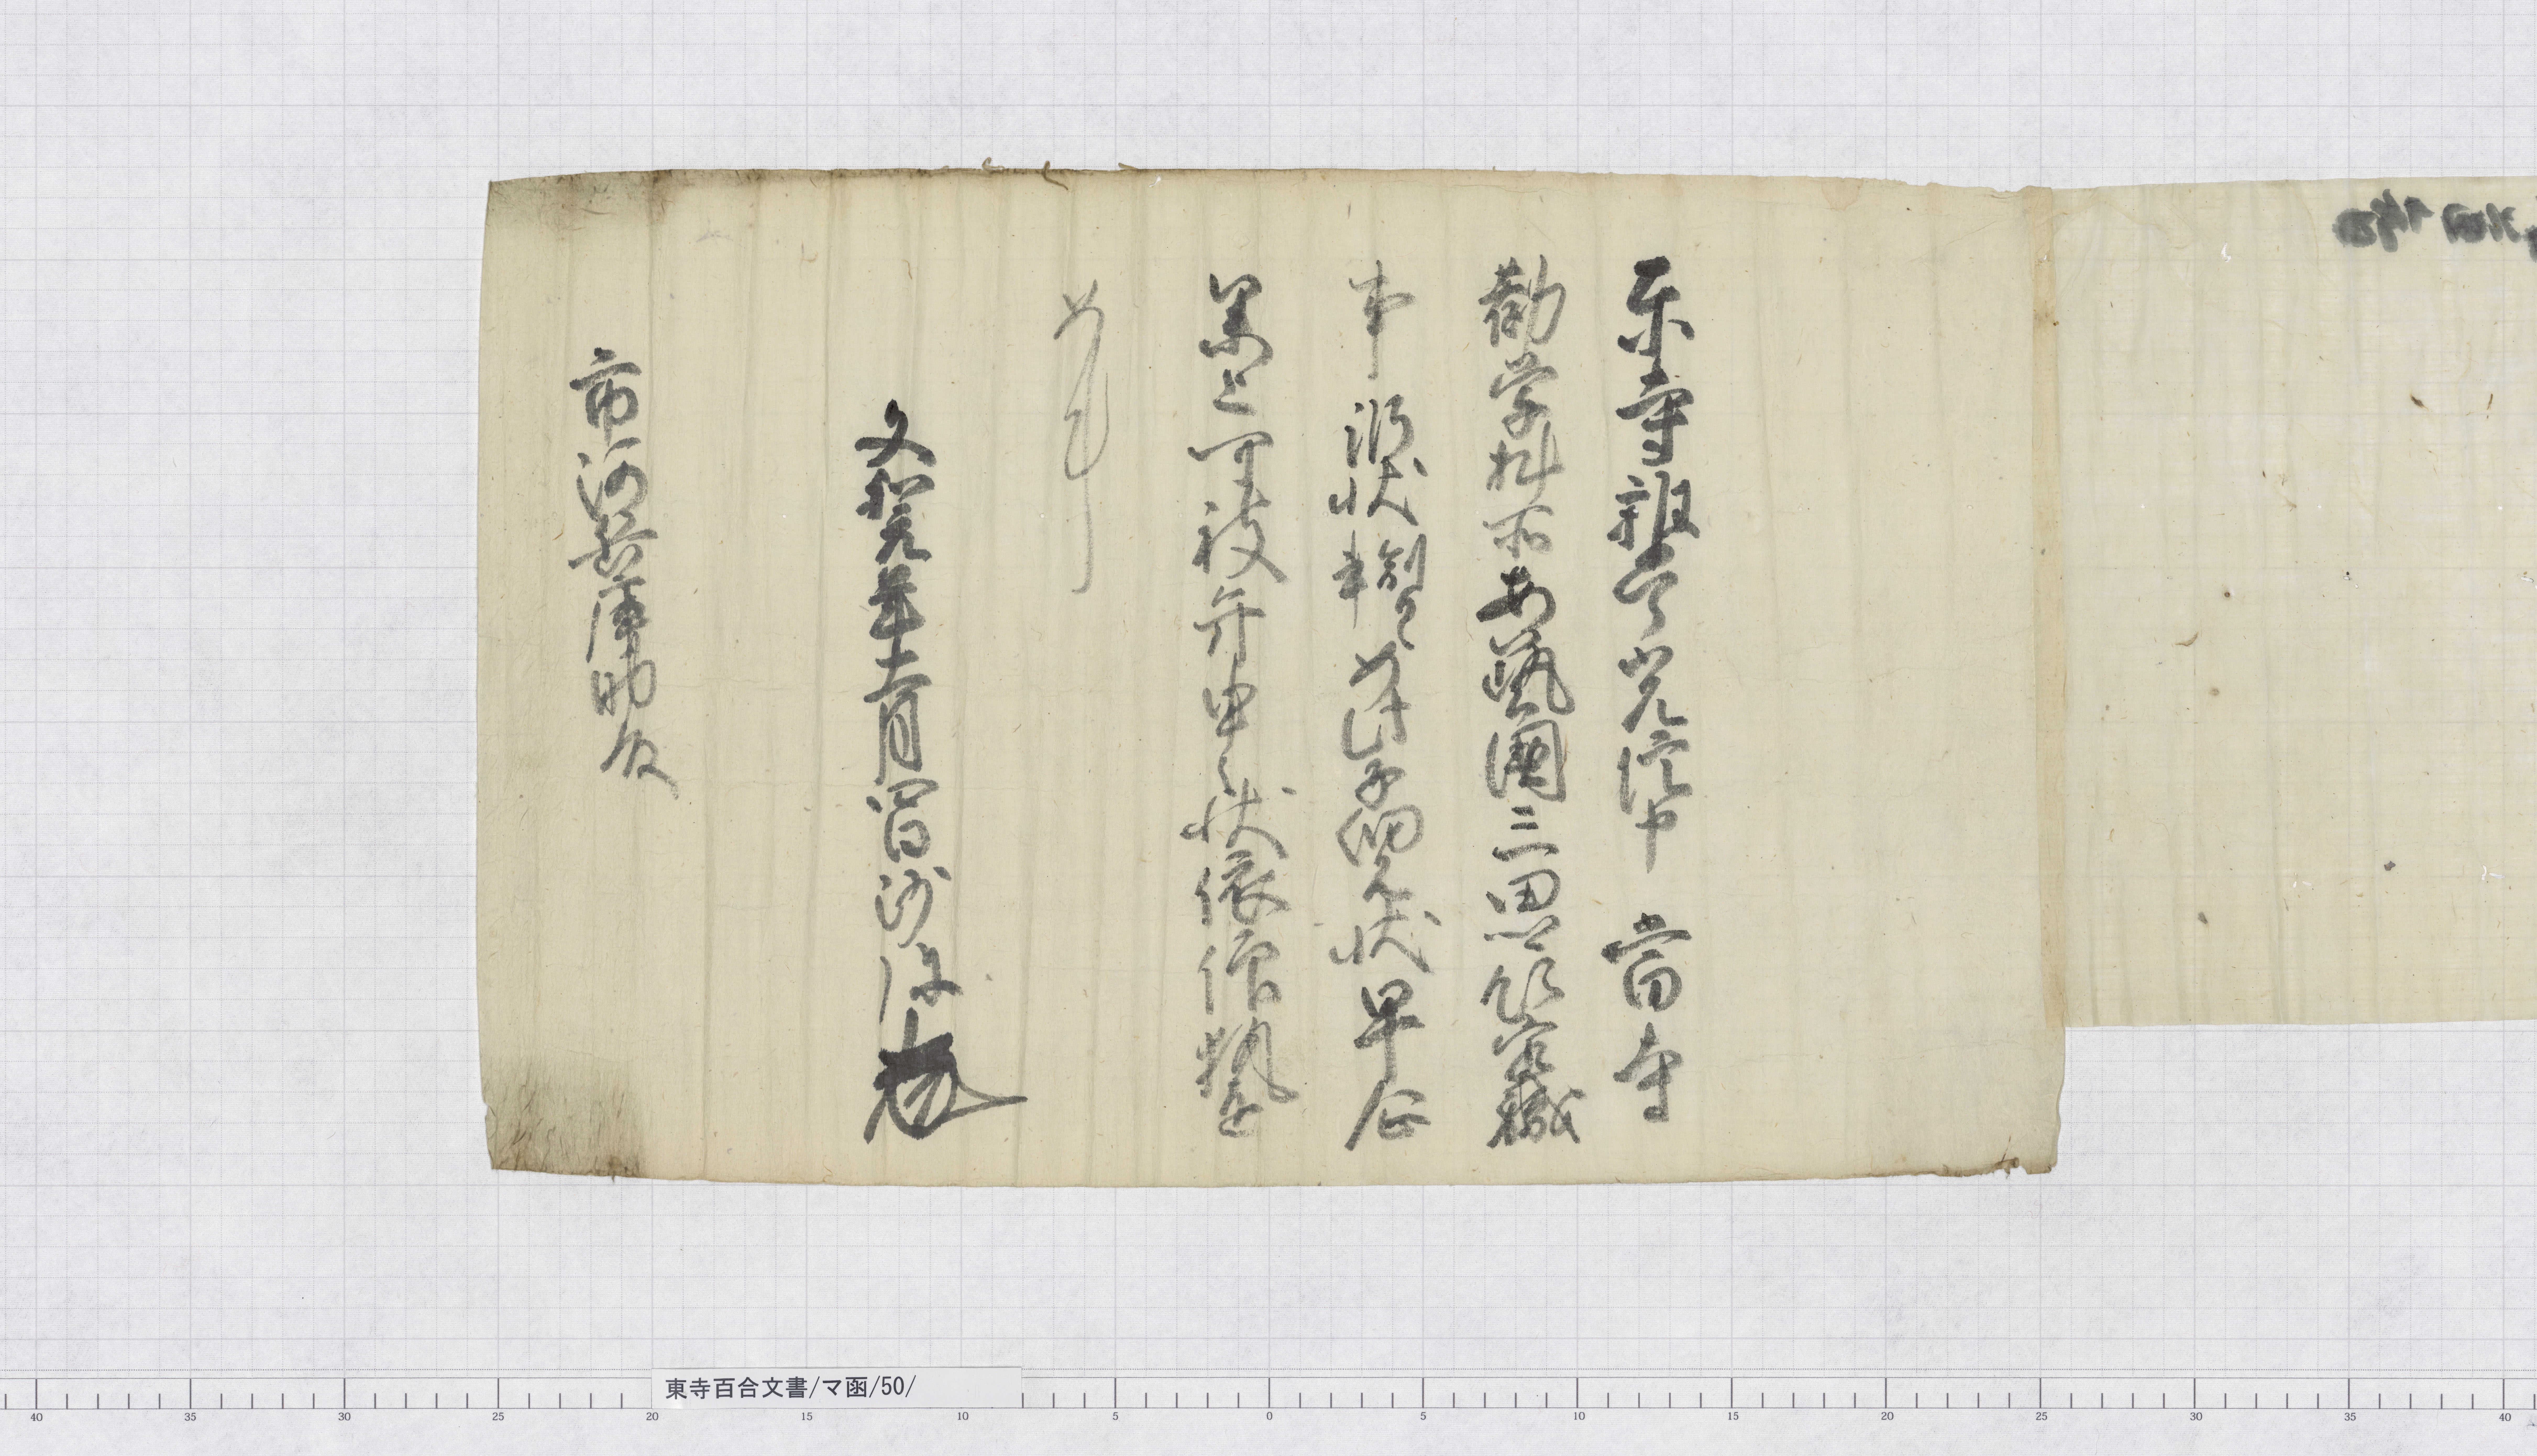 東寺雑掌光信申 当寺
勧学料所安藝國三田郷領家職
事 訴状副具書如此子細見状早企
参上可被弁申之状依仰執達
如件
文和元年十二月 日 沙弥
市河兵庫助殿
東寺百合文書/マ函/50/
40 35 30 25 20 15 10 5 0 5 10 15 20 25 30 35 40